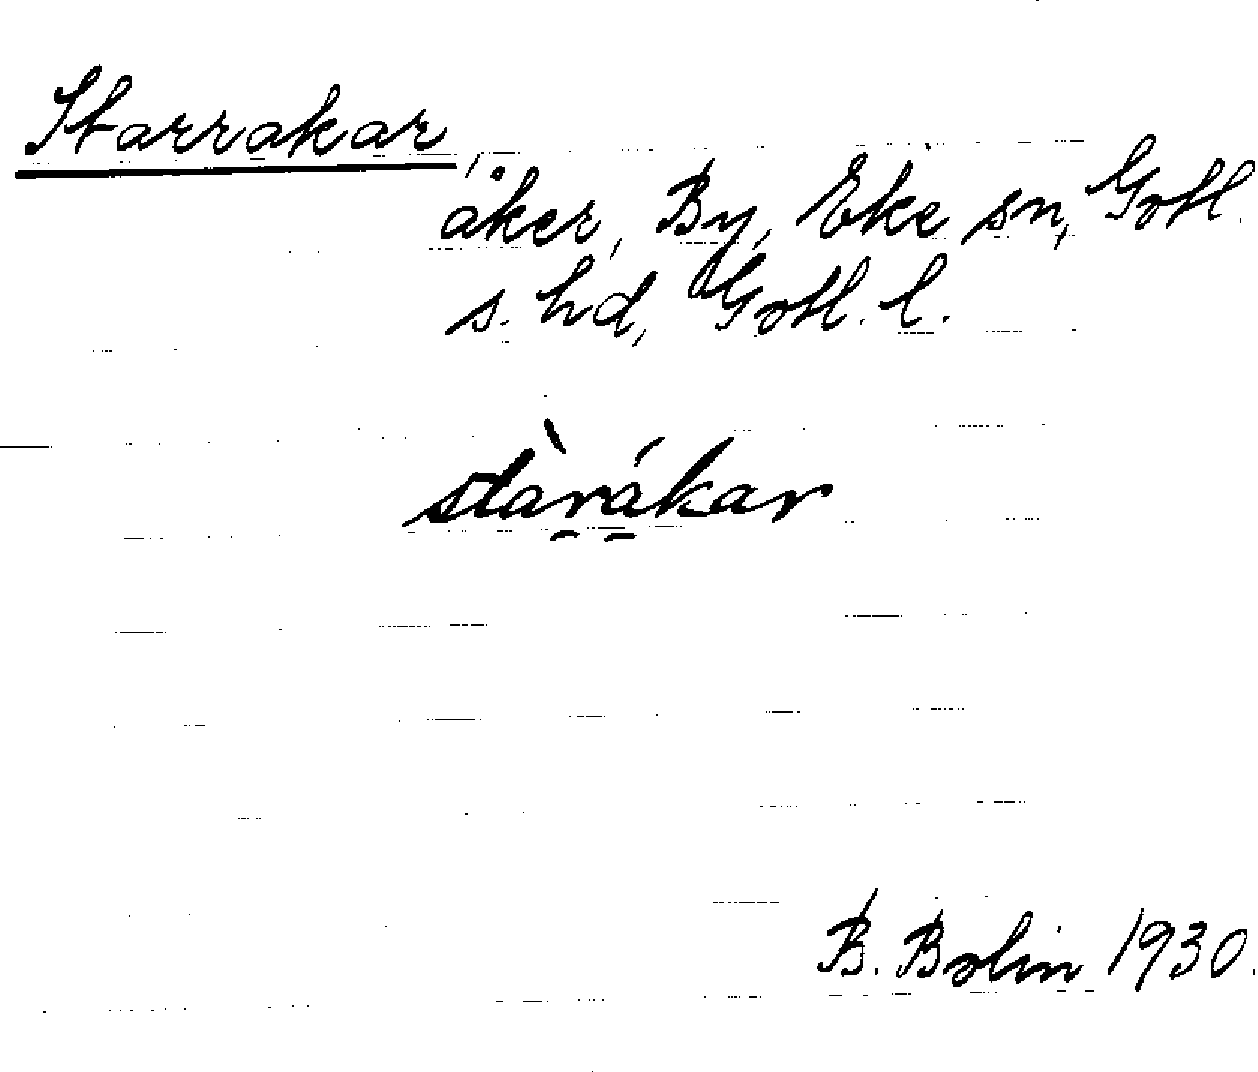 Starrakar,
åker, By, Eke sn, Gotl.
s. hd, Gotl. l.
stàrákar
B. Bolin 1930.